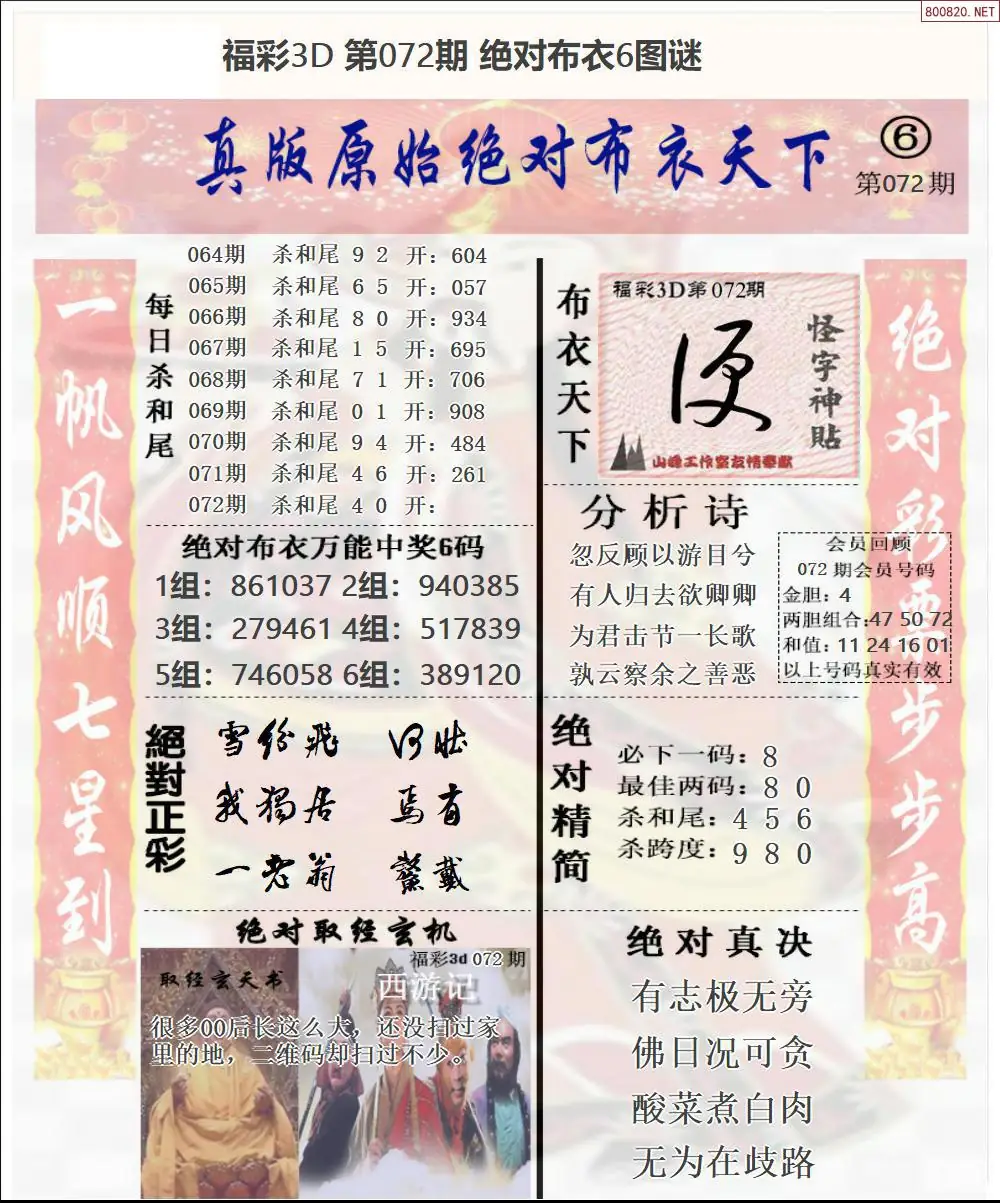 800820.NET
福彩3D 第072期 绝对布衣6图谜
真版原始绝对布衣天下
⑥
第072期
一帆风顺七星到
每日杀和尾
064期 杀和尾 9 2 开：604
065期 杀和尾 6 5 开：057
066期 杀和尾 8 0 开：934
067期 杀和尾 1 5 开：695
068期 杀和尾 7 1 开：706
069期 杀和尾 0 1 开：908
070期 杀和尾 9 4 开：484
071期 杀和尾 4 6 开：261
072期 杀和尾 4 0 开：
绝对布衣万能中奖6码
1组：861037 2组：940385
3组：279461 4组：517839
5组：746058 6组：389120
絕對正彩
雪纷飛 何壯
我獨居 馬首
一老翁 鰲戴
绝对取经玄机
福彩3d 072期
取经玄天书
西游记
很多00后长这么大，还没扫过家
里的地，二维码却扫过不少。
布衣天下
福彩3D第072期
便
怪字神貼
山峰工作室友情奉献
分析诗
忽反顾以游目兮
有人归去欲卿卿
为君击节一长歌
孰云察余之善恶
会员回顾
072期会员号码
金胆：4
两胆组合:47 50 72
和值：11 24 16 01
以上号码真实有效
绝对精简
必下一码：8
最佳两码：8 0
杀和尾：4 5 6
杀跨度：9 8 0
绝对真决
有志极无旁
佛日况可贪
酸菜煮白肉
无为在歧路
绝对彩票步步高